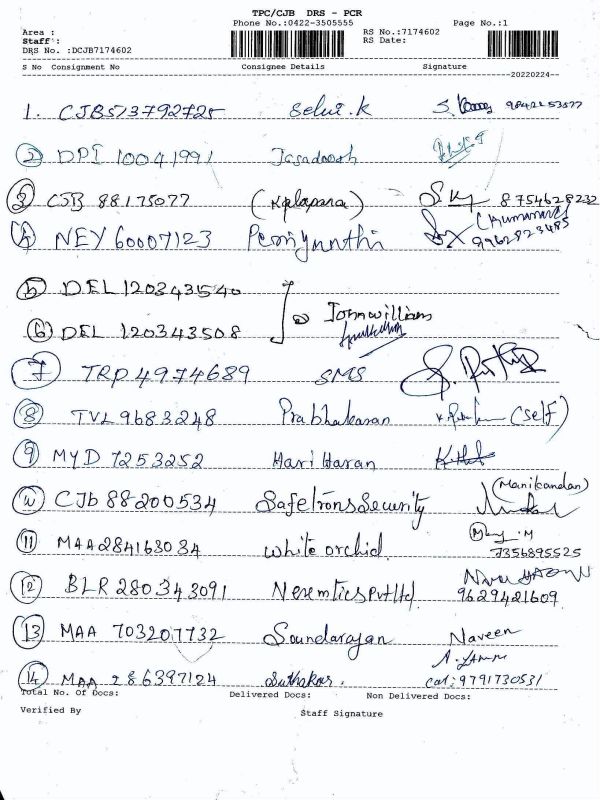 TPC/CJB DRS - PCR
Phone No.:0422-3505555 Page No.:1
Area : RS No.:7174602
Staff : RS Date:
DRS No. :DCJB7174602
S No Consignment No Consignee Details Signature
20220224
1. CJB513792725 Selvi.K
2 DPI 10041991
3 CJB 88175077 8754628232
4 NEY 60007123 9962823485
5 DEL 120343540
6 DEL 120343508 Johnwilliams
7 TRP 4974689 SMS
8 TVL 9683248 Prabhakaran (Self)
9 MYD 7253252 Hari Haran
10 CJb 88200534 Safetrons Security (Manikandan)
11 MAA284163034 White orchid 7356895525
12 BLR 280343091 Pvt ltd 9629421609
13 MAA 703207732 Soundarajan Naveen
14 MAA 286397124 Suthakar. Cal: 9791730531
Total No. Of Docs: Delivered Docs: Non Delivered Docs:
Verified By Staff Signature